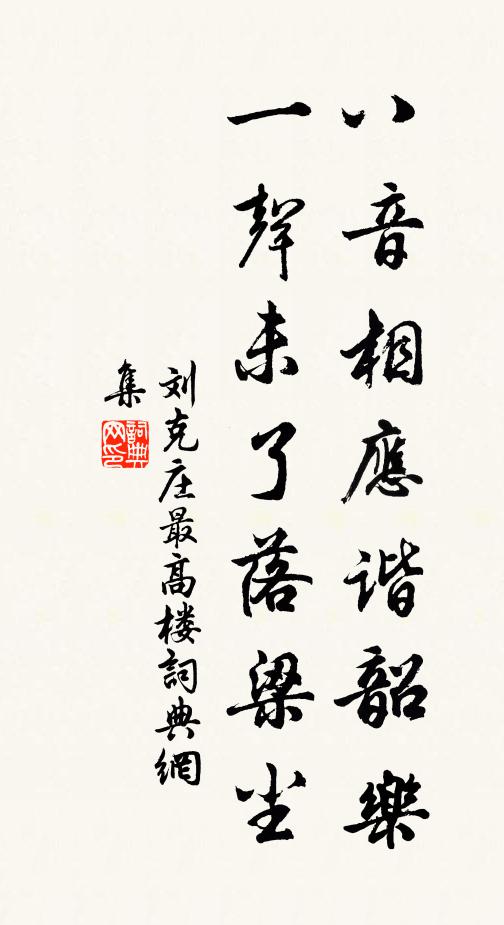 八音相應谐韶樂
一聲未了落梁尘
刘克庄最高楼詞典網
集
詞典网印